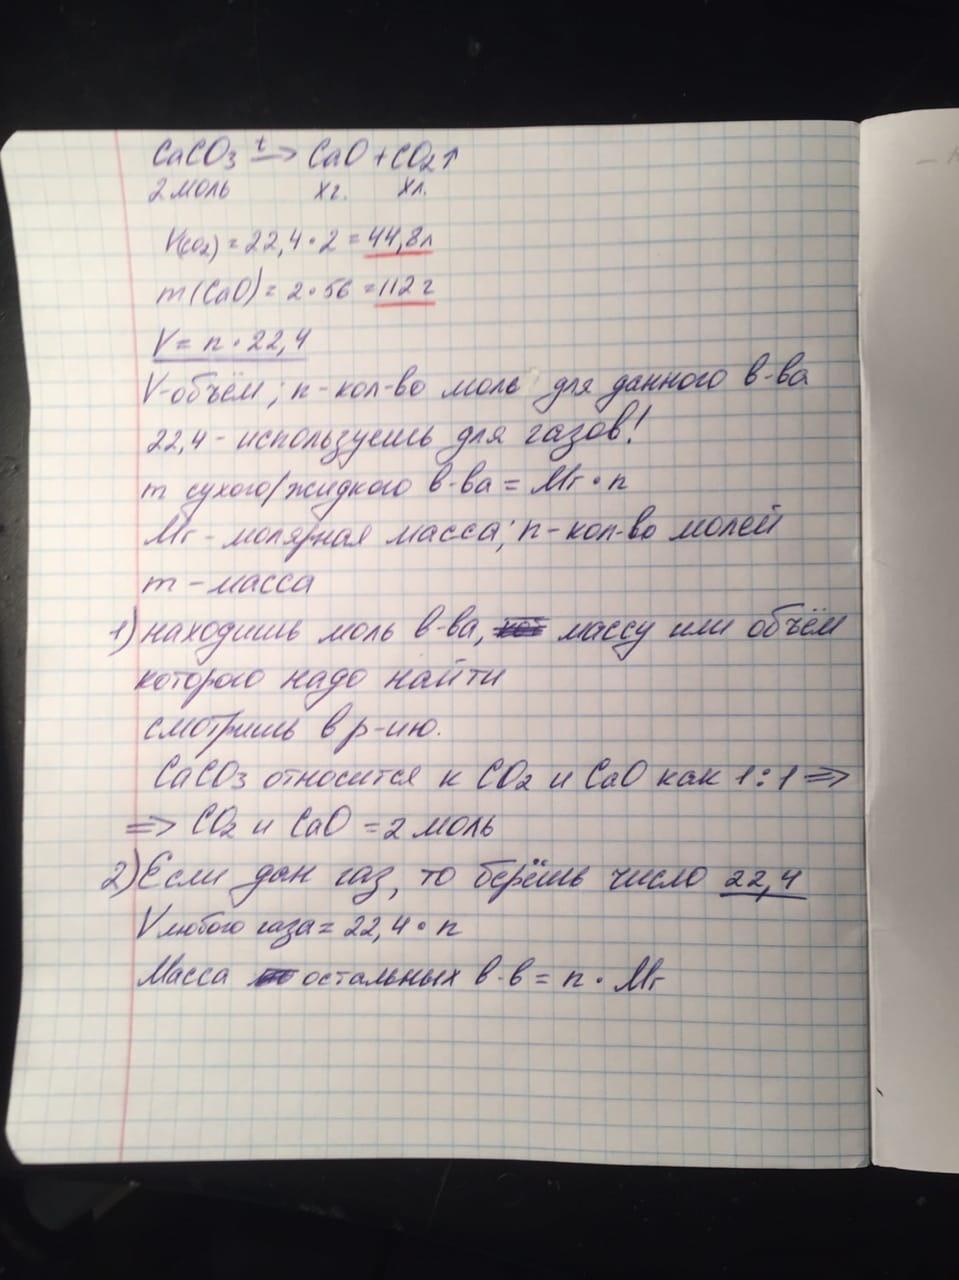 CaCO3 t→ CaO + CO2↑
2 моль хг. хл.
V(CO2) = 22,4 · 2 = 44,8л
m(CaO) = 2 · 56 = 112 г
V = n · 22,4
V-объём; n - кол-во моль для данного в-ва
22,4 - используешь для газов!
m сухого/жидкого в-ва = Mr · n
Mr - молярная масса; n - кол-во молей
m - масса
1) находишь моль в-ва, массу или объём
которого надо найти
смотришь в р-ию.
CaCO3 относится к CO2 и CaO как 1:1 =>
=> CO2 и CaO = 2 моль
2) Если дан газ, то берёшь число 22,4
V любого газа = 22,4 · n
Масса остальных в-в = n · Mr